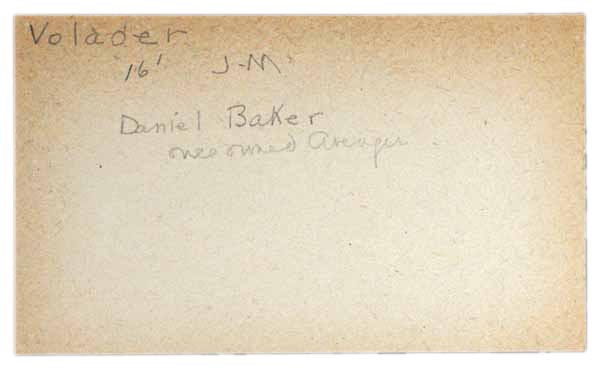 Volader
16' J-M
Daniel Baker
once owned Avenger